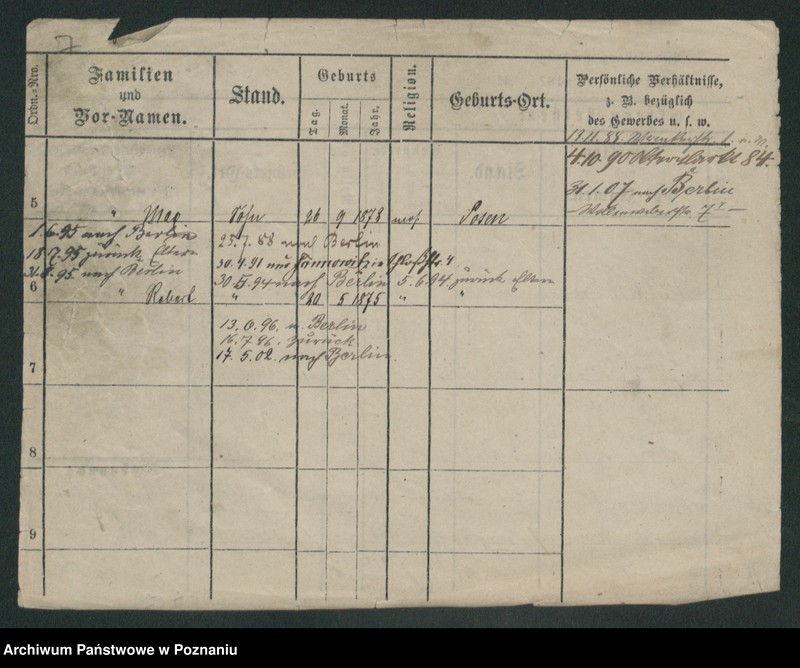 7
Ordn.-Nro.
Familien
und
Vor-Namen.
Stand.
Geburts
Tag.
Monat.
Jahr.
Religion.
Geburts-Ort.
Persönliche Verhältnisse,
z. B. bezüglich
des Gewerbes u. s. w.
13.11.88
4.10.90 84.
31.1.07 nach Berlin
7 I
5
" Max Sohn 26 9 1873 mos Posen
1.6.95 nach Berlin
18.7.95 zurück Eltern
nach Berlin
25.7.88 nach Berlin
30.4.91 nach
30 5.94 nach Berlin 5.6.94 zurück Eltern
6
" Robert " 20 5 1875 " "
13.6.96. n. Berlin
16.7.96. zurück
17.5.02. nach Berlin
7
8
9
Archiwum Państwowe w Poznaniu